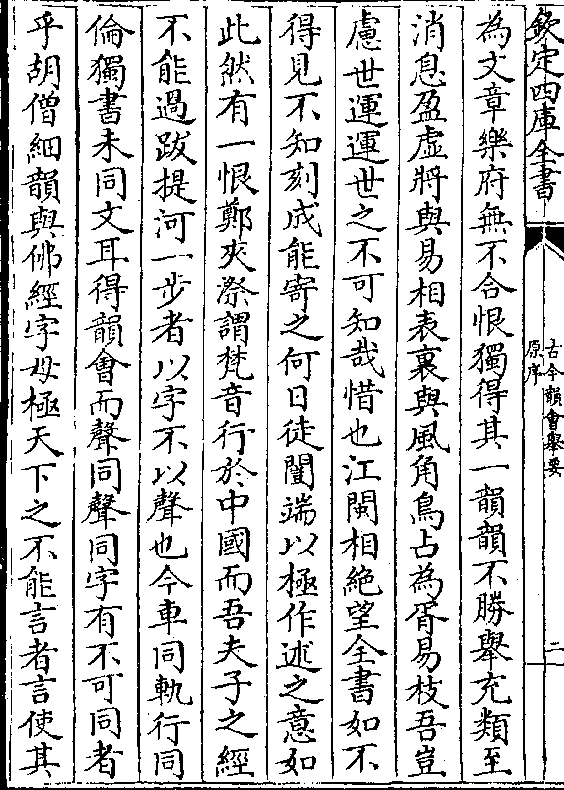 欽定四庫全書
古今韻會舉要
原序
二
為文章樂府無不合恨獨得其一韻韻不勝舉充類至
消息盈虛將與易相表裏與風角鳥占為胥易枝吾豈
慮世運運世之不可知哉惜也江閩相絶望全書如不
得見不知刻成能寄之何日徒闓端以極作述之意如
此然有一恨鄭夾漈謂梵音行於中國而吾夫子之經
不能過跋提河一步者以字不以聲也今車同軌行同
倫獨書未同文耳得韻會而聲同聲同字有不可同者
乎胡僧細韻與佛經字母極天下之不能言者言使其